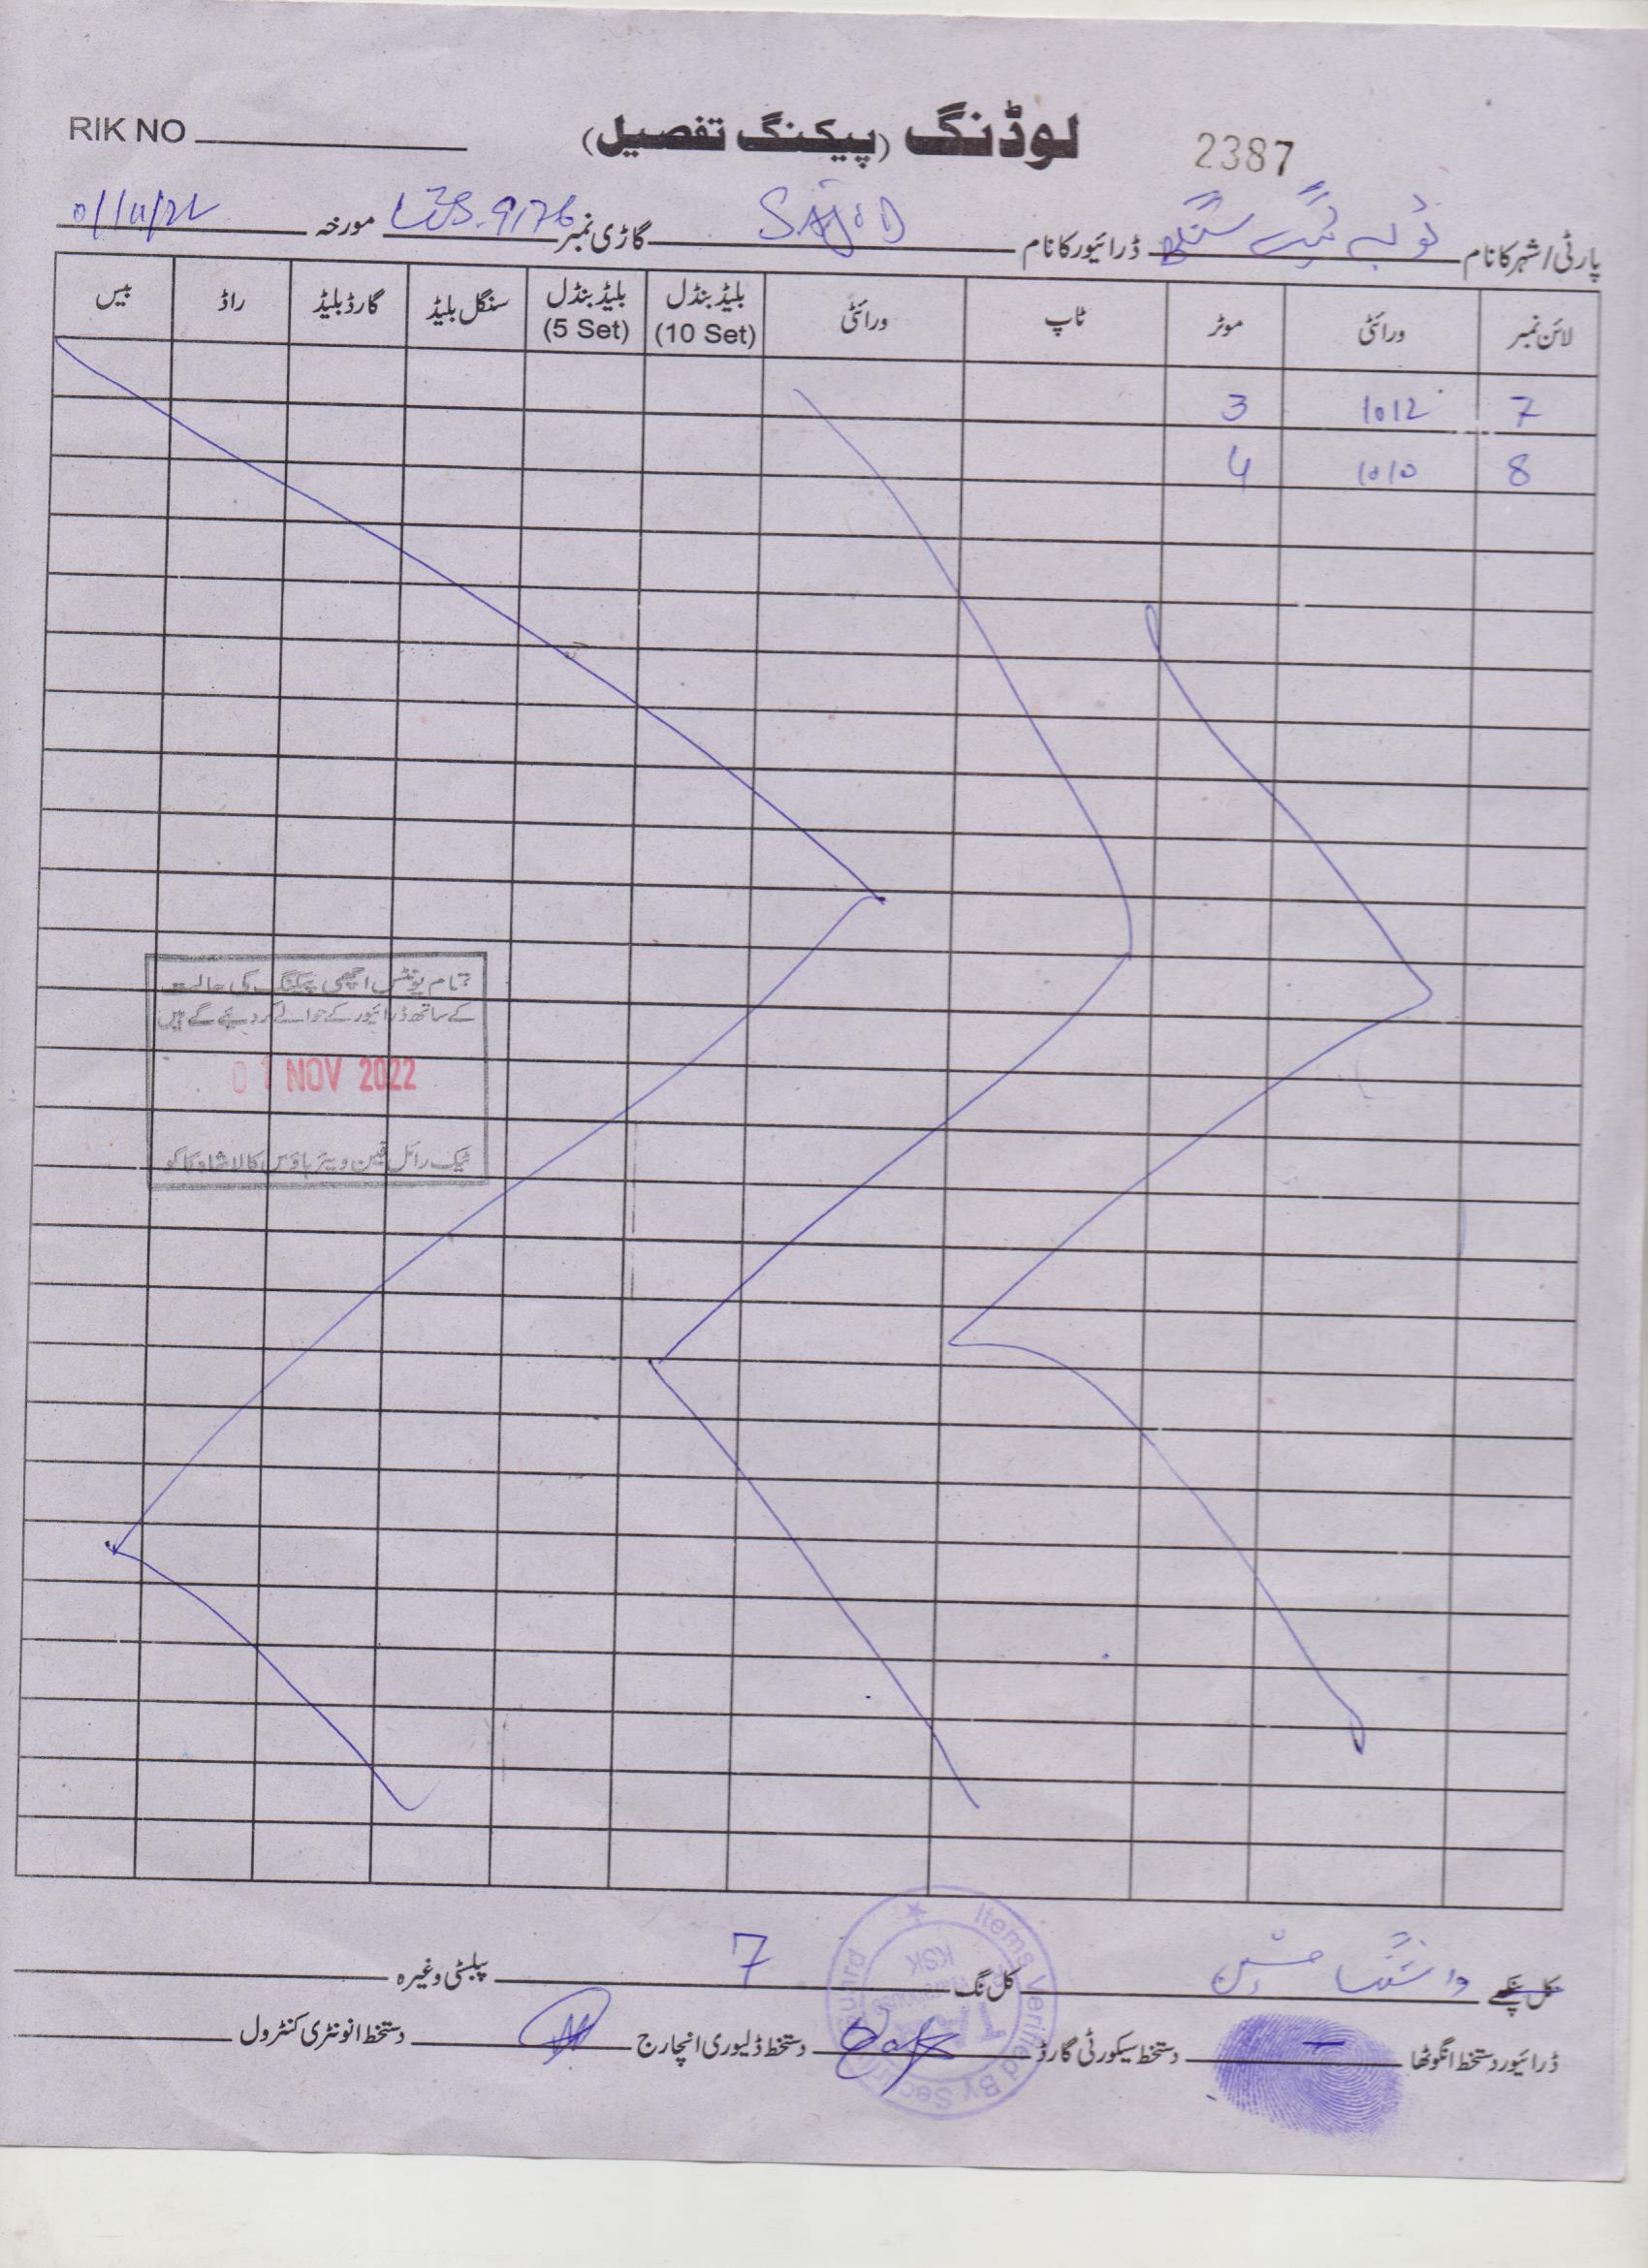 RIK NO لوڈنگ (پیکنگ تفصیل) 2387
پارٹی/شہر کا نام ٹوبہ ٹیک سنگھ ڈرائیور کا نام SAJiD گاڑی نمبر 9176 مورخہ 01/11/22
لائن نمبر ورائٹی موٹر ٹاپ ورائٹی بلیڈ بنڈل (10 Set) بلیڈ بنڈل (5 Set) سنگل بلیڈ گارڈ بلیڈ راڈ بیس
7 1012 3
8 1010 4
تمام یونٹس اچھی پیکنگ کی حالت
کے ساتھ ڈرائیور کے حوالے کر دیئے گے ہیں
01 NOV 2022
ٹیک رائل فین ویئر ہاؤس کالا شاہ کاکو
کل پنکھے کل نگ 7 پبلسٹی وغیرہ
ڈرائیور دستخط انگوٹھا دستخط سیکورٹی گارڈ دستخط ڈلیوری انچارج دستخط انونٹری کنٹرول
Items Verified By Security Guard
KSK